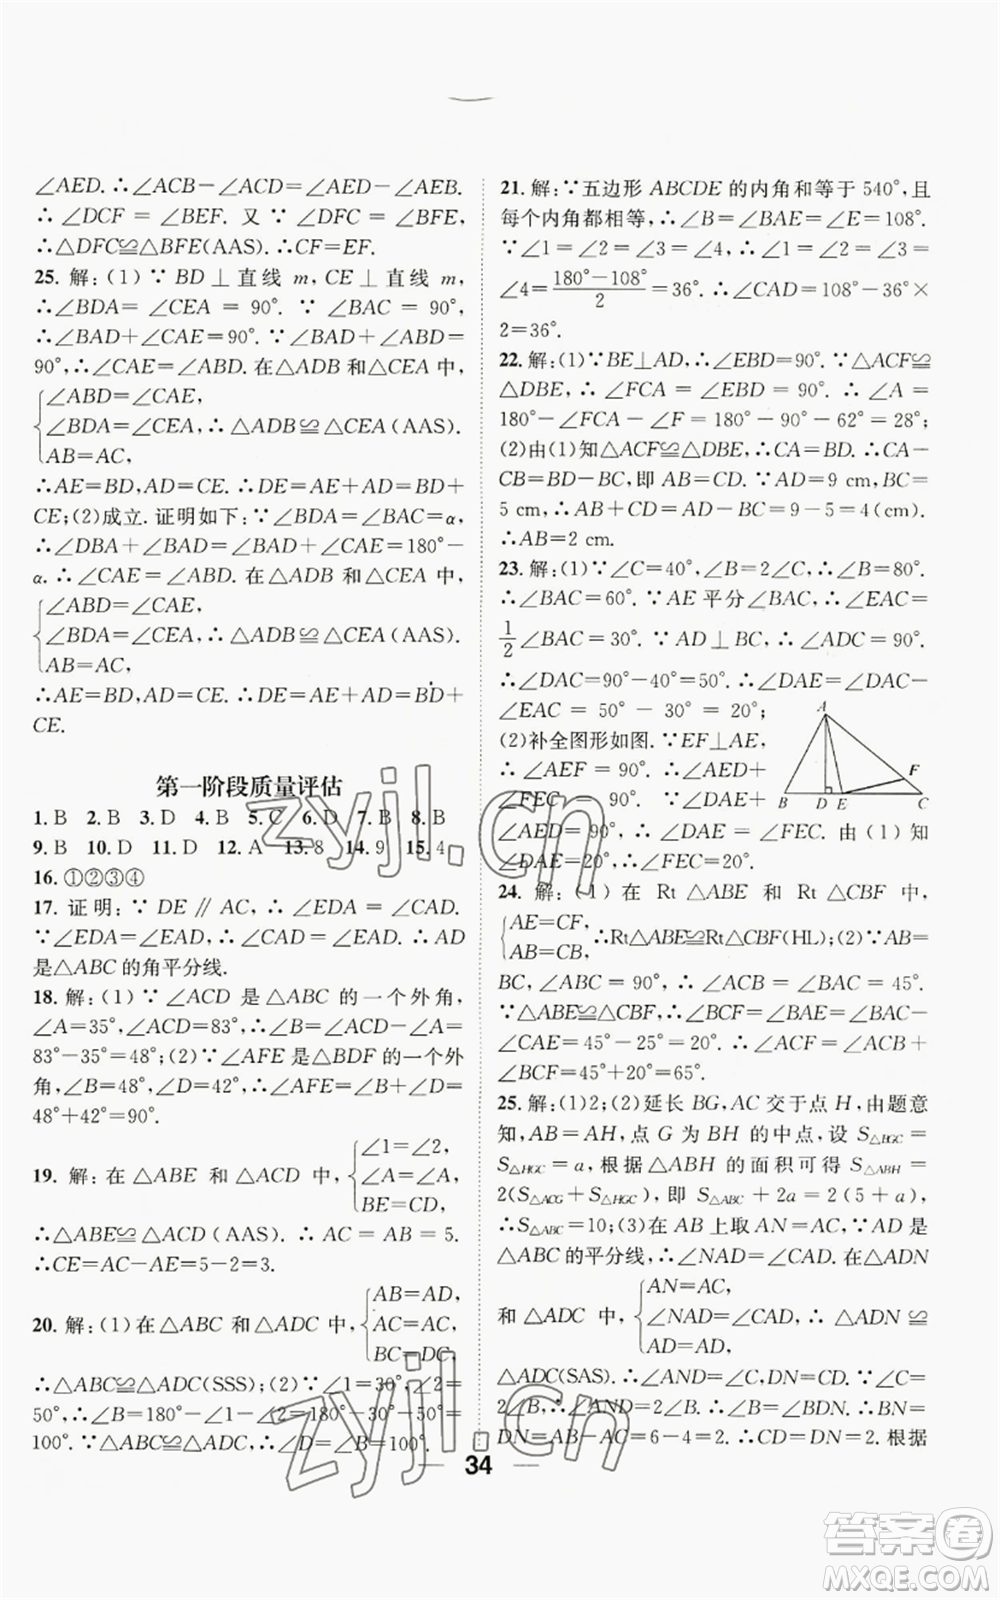 ∠AED. ∴∠ACB-∠ACD=∠AED-∠AEB.
∴∠DCF=∠BEF. 又∵∠DFC=∠BFE,
∴△DFC≌△BFE(AAS). ∴CF=EF.
25. 解:(1)∵BD⊥直线 m,CE⊥直线 m,
∴∠BDA=∠CEA=90°. ∵∠BAC=90°,
∴∠BAD+∠CAE=90°. ∵∠BAD+∠ABD=
90°,∴∠CAE=∠ABD. 在△ADB和△CEA中,
∠ABD=∠CAE,
∠BDA=∠CEA,∴△ADB≌△CEA(AAS).
AB=AC,
∴AE=BD,AD=CE. ∴DE=AE+AD=BD+
CE;(2)成立. 证明如下:∵∠BDA=∠BAC=α,
∴∠DBA+∠BAD=∠BAD+∠CAE=180°-
α. ∴∠CAE=∠ABD. 在△ADB和△CEA中,
∠ABD=∠CAE,
∠BDA=∠CEA,∴△ADB≌△CEA(AAS).
AB=AC,
∴AE=BD,AD=CE. ∴DE=AE+AD=BD+
CE.
第一阶段质量评估
1. B 2. B 3. D 4. B 5. C 6. D 7. B 8. B
9. B 10. D 11. D 12. A 13. 8 14. 9 15. 4
16. ①②③④
17. 证明:∵DE∥AC,∴∠EDA=∠CAD.
∵∠EDA=∠EAD,∴∠CAD=∠EAD. ∴AD
是△ABC的角平分线.
18. 解:(1)∵∠ACD是△ABC的一个外角,
∠A=35°,∠ACD=83°,∴∠B=∠ACD-∠A=
83°-35°=48°;(2)∵∠AFE是△BDF的一个外
角,∠B=48°,∠D=42°,∴∠AFE=∠B+∠D=
48°+42°=90°.
19. 解:在△ABE和△ACD中,
∠1=∠2,
∠A=∠A,
BE=CD,
∴△ABE≌△ACD(AAS). ∴AC=AB=5.
∴CE=AC-AE=5-2=3.
20. 解:(1)在△ABC和△ADC中,
AB=AD,
AC=AC,
BC=DC,
∴△ABC≌△ADC(SSS);(2)∵∠1=30°,∠2=
50°,∴∠B=180°-∠1-∠2=180°-30°-50°=
100°. ∵△ABC≌△ADC,∴∠D=∠B=100°.
21. 解:∵五边形ABCDE的内角和等于540°,且
每个内角都相等,∴∠B=∠BAE=∠E=108°.
∵∠1=∠2=∠3=∠4,∴∠1=∠2=∠3=
∠4=(180°-108°)/2=36°. ∴∠CAD=108°-36°×
2=36°.
22. 解:(1)∵BE⊥AD,∴∠EBD=90°. ∵△ACF≌
△DBE,∴∠FCA=∠EBD=90°. ∴∠A=
180°-∠FCA-∠F=180°-90°-62°=28°;
(2)由(1)知△ACF≌△DBE,∴CA=BD. ∴CA-
CB=BD-BC,即AB=CD. ∵AD=9 cm,BC=
5 cm,∴AB+CD=AD-BC=9-5=4(cm).
∴AB=2 cm.
23. 解:(1)∵∠C=40°,∠B=2∠C,∴∠B=80°.
∴∠BAC=60°. ∵AE平分∠BAC,∴∠EAC=
1/2∠BAC=30°. ∵AD⊥BC,∴∠ADC=90°.
∴∠DAC=90°-40°=50°. ∴∠DAE=∠DAC-
∠EAC=50°-30°=20°;
(2)补全图形如图. ∵EF⊥AE,
∴∠AEF=90°. ∴∠AED+
∠FEC=90°. ∵∠DAE+
∠AED=90°,∴∠DAE=∠FEC. 由(1)知
∠DAE=20°,∴∠FEC=20°.
A
F
B D E C
24. 解:(1)在Rt△ABE和Rt△CBF中,
AE=CF,
AB=CB,
∴Rt△ABE≌Rt△CBF(HL);(2)∵AB=
BC,∠ABC=90°,∴∠ACB=∠BAC=45°.
∵△ABE≌△CBF,∴∠BCF=∠BAE=∠BAC-
∠CAE=45°-25°=20°. ∴∠ACF=∠ACB+
∠BCF=45°+20°=65°.
25. 解:(1)2;(2)延长BG,AC交于点H,由题意
知,AB=AH,点G为BH的中点,设S△BGC=
S△HGC=a,根据△ABH的面积可得S△ABH=
2(S△ACG+S△HGC),即S△ABC+2a=2(5+a),
∴S△ABC=10;(3)在AB上取AN=AC,∵AD是
△ABC的平分线,∴∠NAD=∠CAD. 在△ADN
和△ADC中,
AN=AC,
∠NAD=∠CAD,∴△ADN≌
AD=AD,
△ADC(SAS). ∴∠AND=∠C,DN=CD. ∵∠C=
2∠B,∴∠AND=2∠B. ∴∠B=∠NDB. ∴BN=
DN=AB-AN=6-4=2. ∴CD=DN=2. 根据
34
zyjl.cn
zyjl.cn
答案卷
MXQE.COM